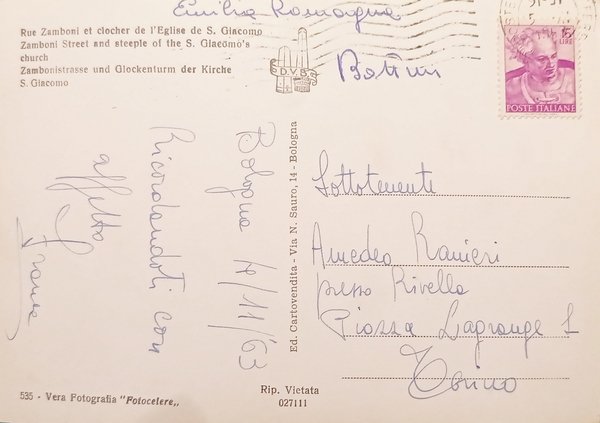 Emilia Romagna
Rue Zamboni et clocher de l'Eglise de S. Giacomo
Zamboni Street and steeple of the S. Giacomo's
church
Zambonistrasse und Glockenturm der Kirche
S. Giacomo
D.V.B.
15
LIRE
POSTE ITALIANE
Bologna 4/11/63
Ricordandoti con
affetto
Franca
Ed. Cartovendita - Via N. Sauro, 14 - Bologna
Sottotenente
Amedeo Ranieri
presso Rivella
Piazza Lagrange 1
Torino
535 - Vera Fotografia "Fotocelere„
Rip. Vietata
027111